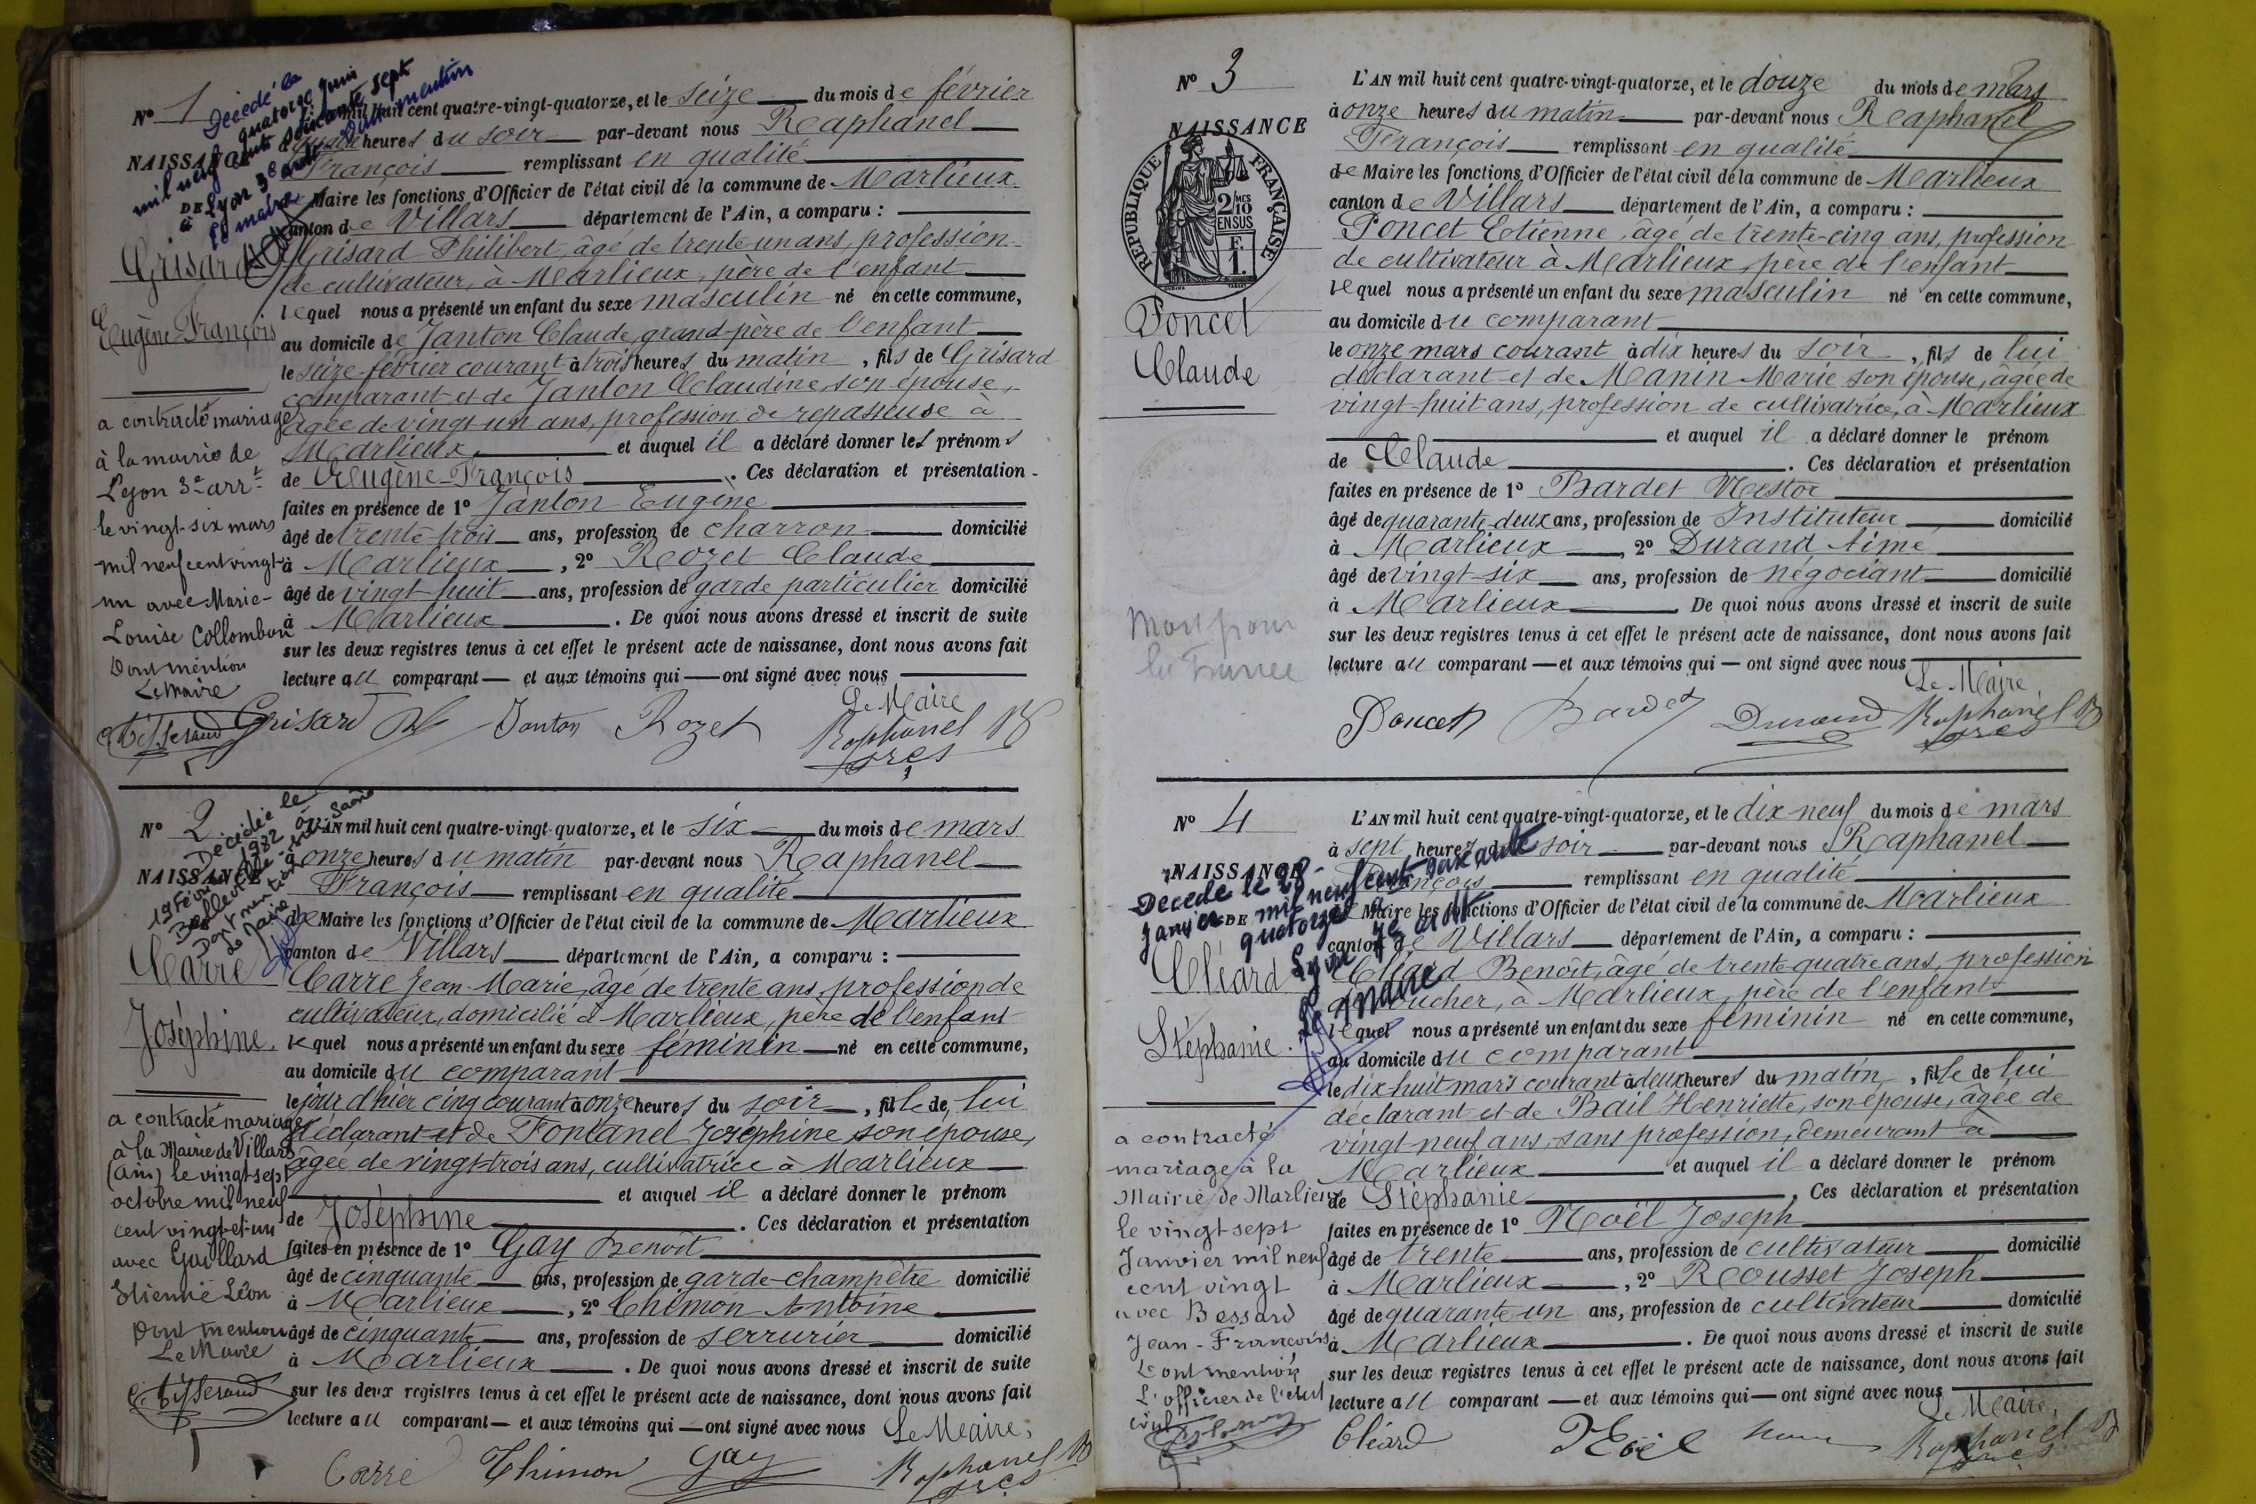 N° 1
Décédé le
quatorze juin
mil neuf cent soixante sept
à Lyon 3e arrt
Dont mention
Le maire
NAISSANCE
DE
Grisard
Eugène François
a contracté mariage
à la mairie de
Lyon 3e arrt
le vingt-six mars
mil neuf cent vingt-
un avec Marie-
Louise Collombon
Dont mention
Le Maire
Tisserand
mil huit cent quatre-vingt-quatorze, et le seize du mois de février
heures du soir par-devant nous Raphanel
François remplissant en qualité
Maire les fonctions d'Officier de l'état civil de la commune de Marlieux
canton de Villars département de l'Ain, a comparu :
Grisard Philibert, âgé de trente-un ans, profession
de cultivateur, à Marlieux, père de l'enfant
lequel nous a présenté un enfant du sexe masculin né en cette commune,
au domicile de Janton Claude, grand-père de l'enfant
le seize février courant à trois heures du matin, fils de Grisard
comparant et de Janton Claudine, son épouse,
âgée de vingt un ans, profession de repasseuse à
Marlieux, et auquel il a déclaré donner les prénoms
de Eugène-François. Ces déclaration et présentation
faites en présence de 1° Janton Eugène
âgé de trente-trois ans, profession de charron domicilié
à Marlieux, 2° Rozet Claude
âgé de vingt-huit ans, profession de garde particulier domicilié
à Marlieux. De quoi nous avons dressé et inscrit de suite
sur les deux registres tenus à cet effet le présent acte de naissance, dont nous avons fait
lecture au comparant et aux témoins qui ont signé avec nous
Le Maire
Grisard Janton Rozet Raphanel
frçs
N° 2
Décédée le
19 Février 1982 à
Belleville-sur-Saône
Dont mention
Le Maire
NAISSANCE
Carre
Joséphine.
a contracté mariage
à la Mairie de Villars
(Ain) le vingt-sept
octobre mil neuf
cent vingt-et-un
avec Gaillard
Etienne Léon
Dont mention
Le Maire
Tisserand
L'AN mil huit cent quatre-vingt-quatorze, et le six du mois de mars
à onze heures du matin par-devant nous Raphanel
François remplissant en qualité
de Maire les fonctions d'Officier de l'état civil de la commune de Marlieux
canton de Villars département de l'Ain, a comparu :
Carre Jean-Marie, âgé de trente ans, profession de
cultivateur, domicilié à Marlieux, père de l'enfant
lequel nous a présenté un enfant du sexe féminin né en cette commune,
au domicile du comparant
le jour d'hier cinq courant à onze heures du soir, fille de lui
déclarant et de Fontanel Joséphine son épouse,
âgée de vingt-trois ans, cultivatrice à Marlieux
et auquel il a déclaré donner le prénom
de Joséphine. Ces déclaration et présentation
faites en présence de 1° Gay Benoît
âgé de cinquante ans, profession de garde-champêtre domicilié
à Marlieux, 2° Thimon Antoine
âgé de cinquante ans, profession de serrurier domicilié
à Marlieux. De quoi nous avons dressé et inscrit de suite
sur les deux registres tenus à cet effet le présent acte de naissance, dont nous avons fait
lecture au comparant et aux témoins qui ont signé avec nous Le Maire,
Carre Thimon Gay Raphanel
frçs
N° 3
NAISSANCE
RÉPUBLIQUE FRANÇAISE
2/10 MES
EN SUS
1 F.
Poncet
Claude
Mort pour
la France
L'AN mil huit cent quatre-vingt-quatorze, et le douze du mois de mars
à onze heures du matin par-devant nous Raphanel
François remplissant en qualité
de Maire les fonctions d'Officier de l'état civil de la commune de Marlieux
canton de Villars département de l'Ain, a comparu :
Poncet Etienne, âgé de trente-cinq ans, profession
de cultivateur à Marlieux, père de l'enfant
lequel nous a présenté un enfant du sexe masculin né en cette commune,
au domicile du comparant
le onze mars courant à dix heures du soir, fils de lui
déclarant et de Manin Marie son épouse, âgée de
vingt-huit ans, profession de cultivatrice, à Marlieux
et auquel il a déclaré donner le prénom
de Claude. Ces déclaration et présentation
faites en présence de 1° Bardet Nestor
âgé de quarante-deux ans, profession de Instituteur domicilié
à Marlieux, 2° Durand Aimé
âgé de vingt-six ans, profession de négociant domicilié
à Marlieux. De quoi nous avons dressé et inscrit de suite
sur les deux registres tenus à cet effet le présent acte de naissance, dont nous avons fait
lecture au comparant et aux témoins qui ont signé avec nous
Le Maire,
Poncet Bardet Durand Raphanel
frçs
N° 4
NAISSANCE
DE
Décédé le 28
janvier mil neuf cent soixante
quatorze à
Lyon 7e arrt
Le Maire
Cléard
Stéphanie.
a contracté
mariage à la
Mairie de Marlieux
le vingt sept
Janvier mil neuf
cent vingt
avec Bessard
Jean-François
Dont mention
L'officier de l'état
civil
L'AN mil huit cent quatre-vingt-quatorze, et le dix-neuf du mois de mars
à sept heures du soir par-devant nous Raphanel
François remplissant en qualité
de Maire les fonctions d'Officier de l'état civil de la commune de Marlieux
canton de Villars département de l'Ain, a comparu :
Cléard Benoît, âgé de trente-quatre ans, profession
de boucher, à Marlieux, père de l'enfant
lequel nous a présenté un enfant du sexe féminin né en cette commune,
au domicile du comparant
le dix huit mars courant à deux heures du matin, fille de lui
déclarant et de Bail Henriette, son épouse, âgée de
vingt-neuf ans, sans profession, demeurant à
Marlieux et auquel il a déclaré donner le prénom
de Stéphanie. Ces déclaration et présentation
faites en présence de 1° Noël Joseph
âgé de trente ans, profession de cultivateur domicilié
à Marlieux, 2° Rousset Joseph
âgé de quarante un ans, profession de cultivateur domicilié
à Marlieux. De quoi nous avons dressé et inscrit de suite
sur les deux registres tenus à cet effet le présent acte de naissance, dont nous avons fait
lecture au comparant et aux témoins qui ont signé avec nous
Le Maire,
Cléard Noël Raphanel
frçs